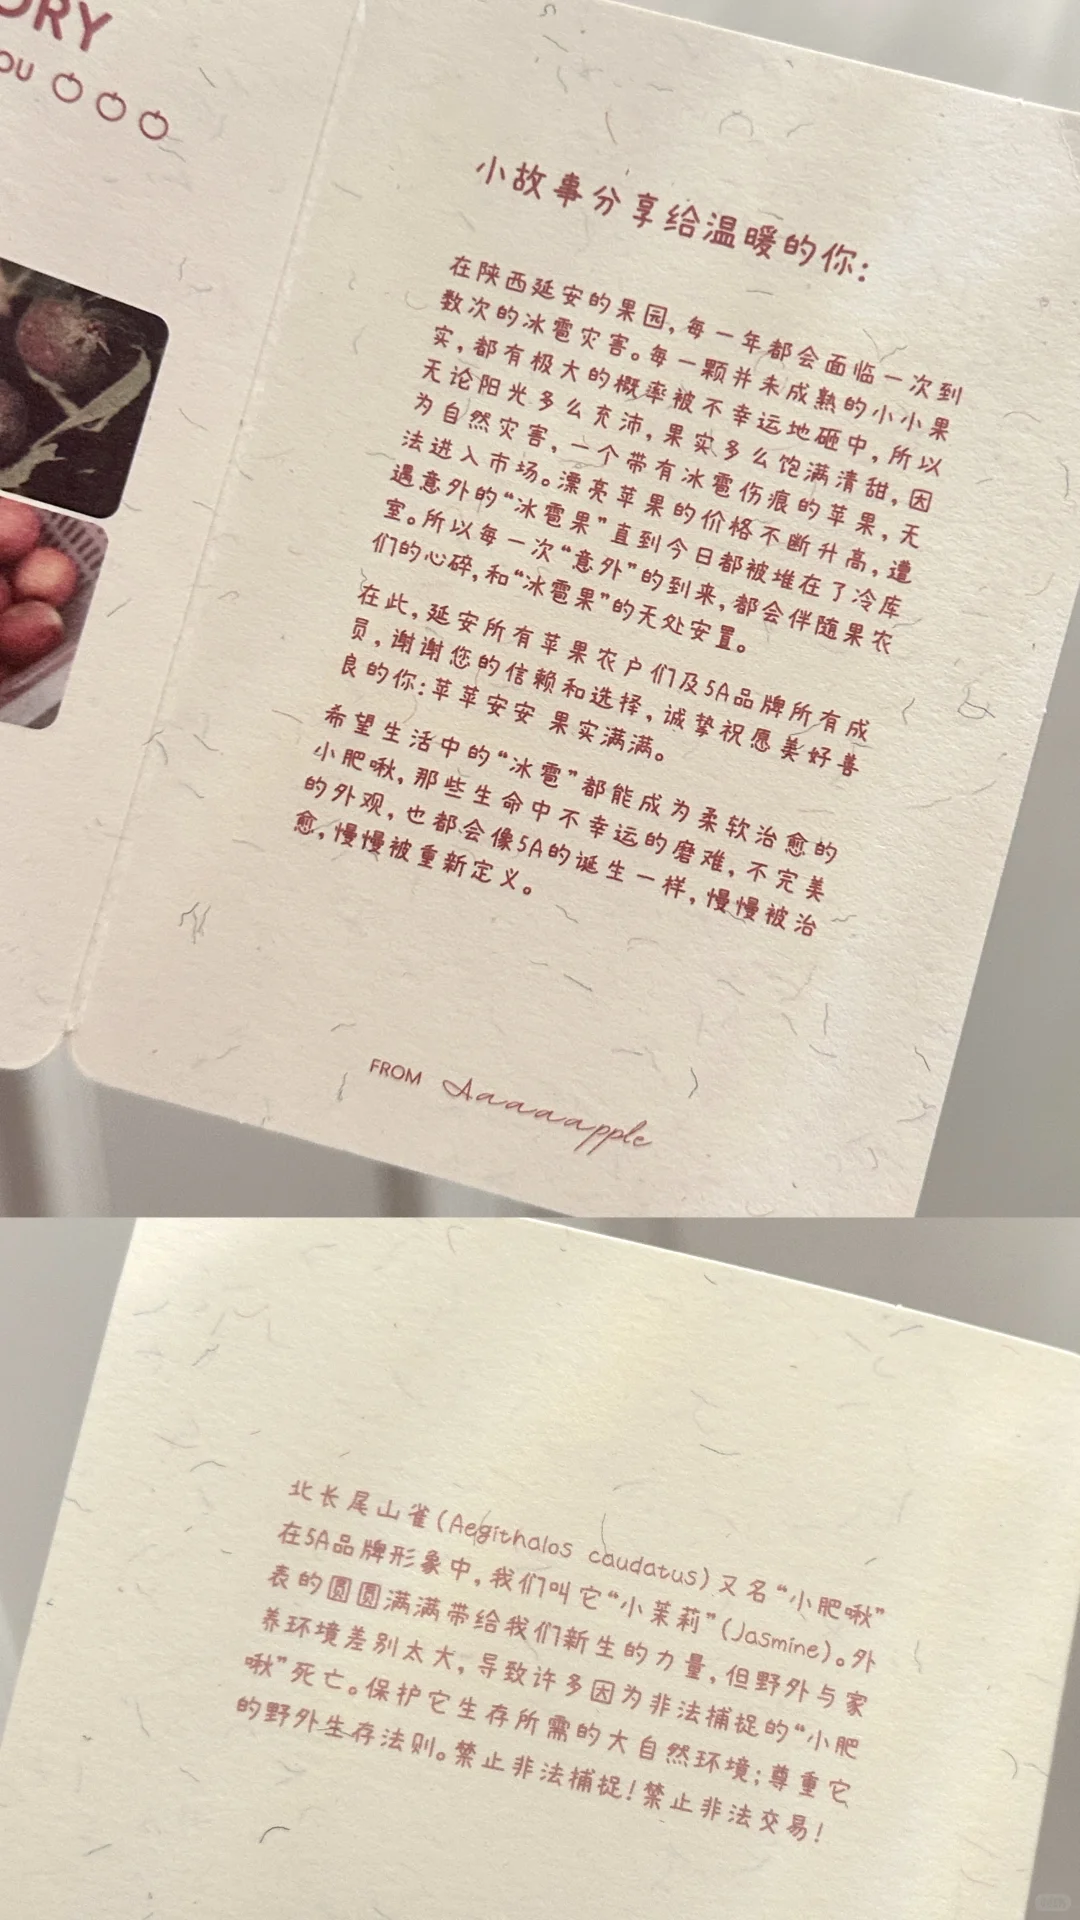 ORY
OU
小故事分享给温暖的你:
在陕西延安的果园,每一年都会面临一次到
数次的冰雹灾害。每一颗并未成熟的小小果
实,都有极大的概率被不幸运地砸中,所以
无论阳光多么充沛,果实多么饱满清甜,因
为自然灾害,一个带有冰雹伤痕的苹果,无
法进入市场。漂亮苹果的价格不断升高,遭
遇意外的“冰雹果”直到今日都被堆在了冷库
室。所以每一次“意外”的到来,都会伴随果农
们的心碎,和“冰雹果”的无处安置。
在此,延安所有苹果农户们及5A品牌所有成
员,谢谢您的信赖和选择,诚挚祝愿美好善
良的你:苹苹安安 果实满满。
希望生活中的“冰雹”都能成为柔软治愈的
小肥啾,那些生命中不幸运的磨难,不完美
的外观,也都会像5A的诞生一样,慢慢被治
愈,慢慢被重新定义。
FROM Aaaaapple
北长尾山雀(Aegithalos caudatus)又名“小肥啾”
在5A品牌形象中,我们叫它“小茉莉”(Jasmine)。外
表的圆圆满满带给我们新生的力量,但野外与家
养环境差别太大,导致许多因为非法捕捉的“小肥
啾”死亡。保护它生存所需的大自然环境;尊重它
的野外生存法则。禁止非法捕捉!禁止非法交易!